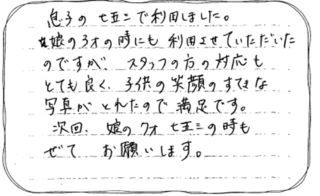 息子の七五三で利用しました。
娘の3才の時にも利用させていただいた
のですが、スタッフの方の対応も
とても良く、子供の笑顔のすてきな
写真がとれたので満足です。
次回、娘の7才七五三の時も
ぜて お願いします。